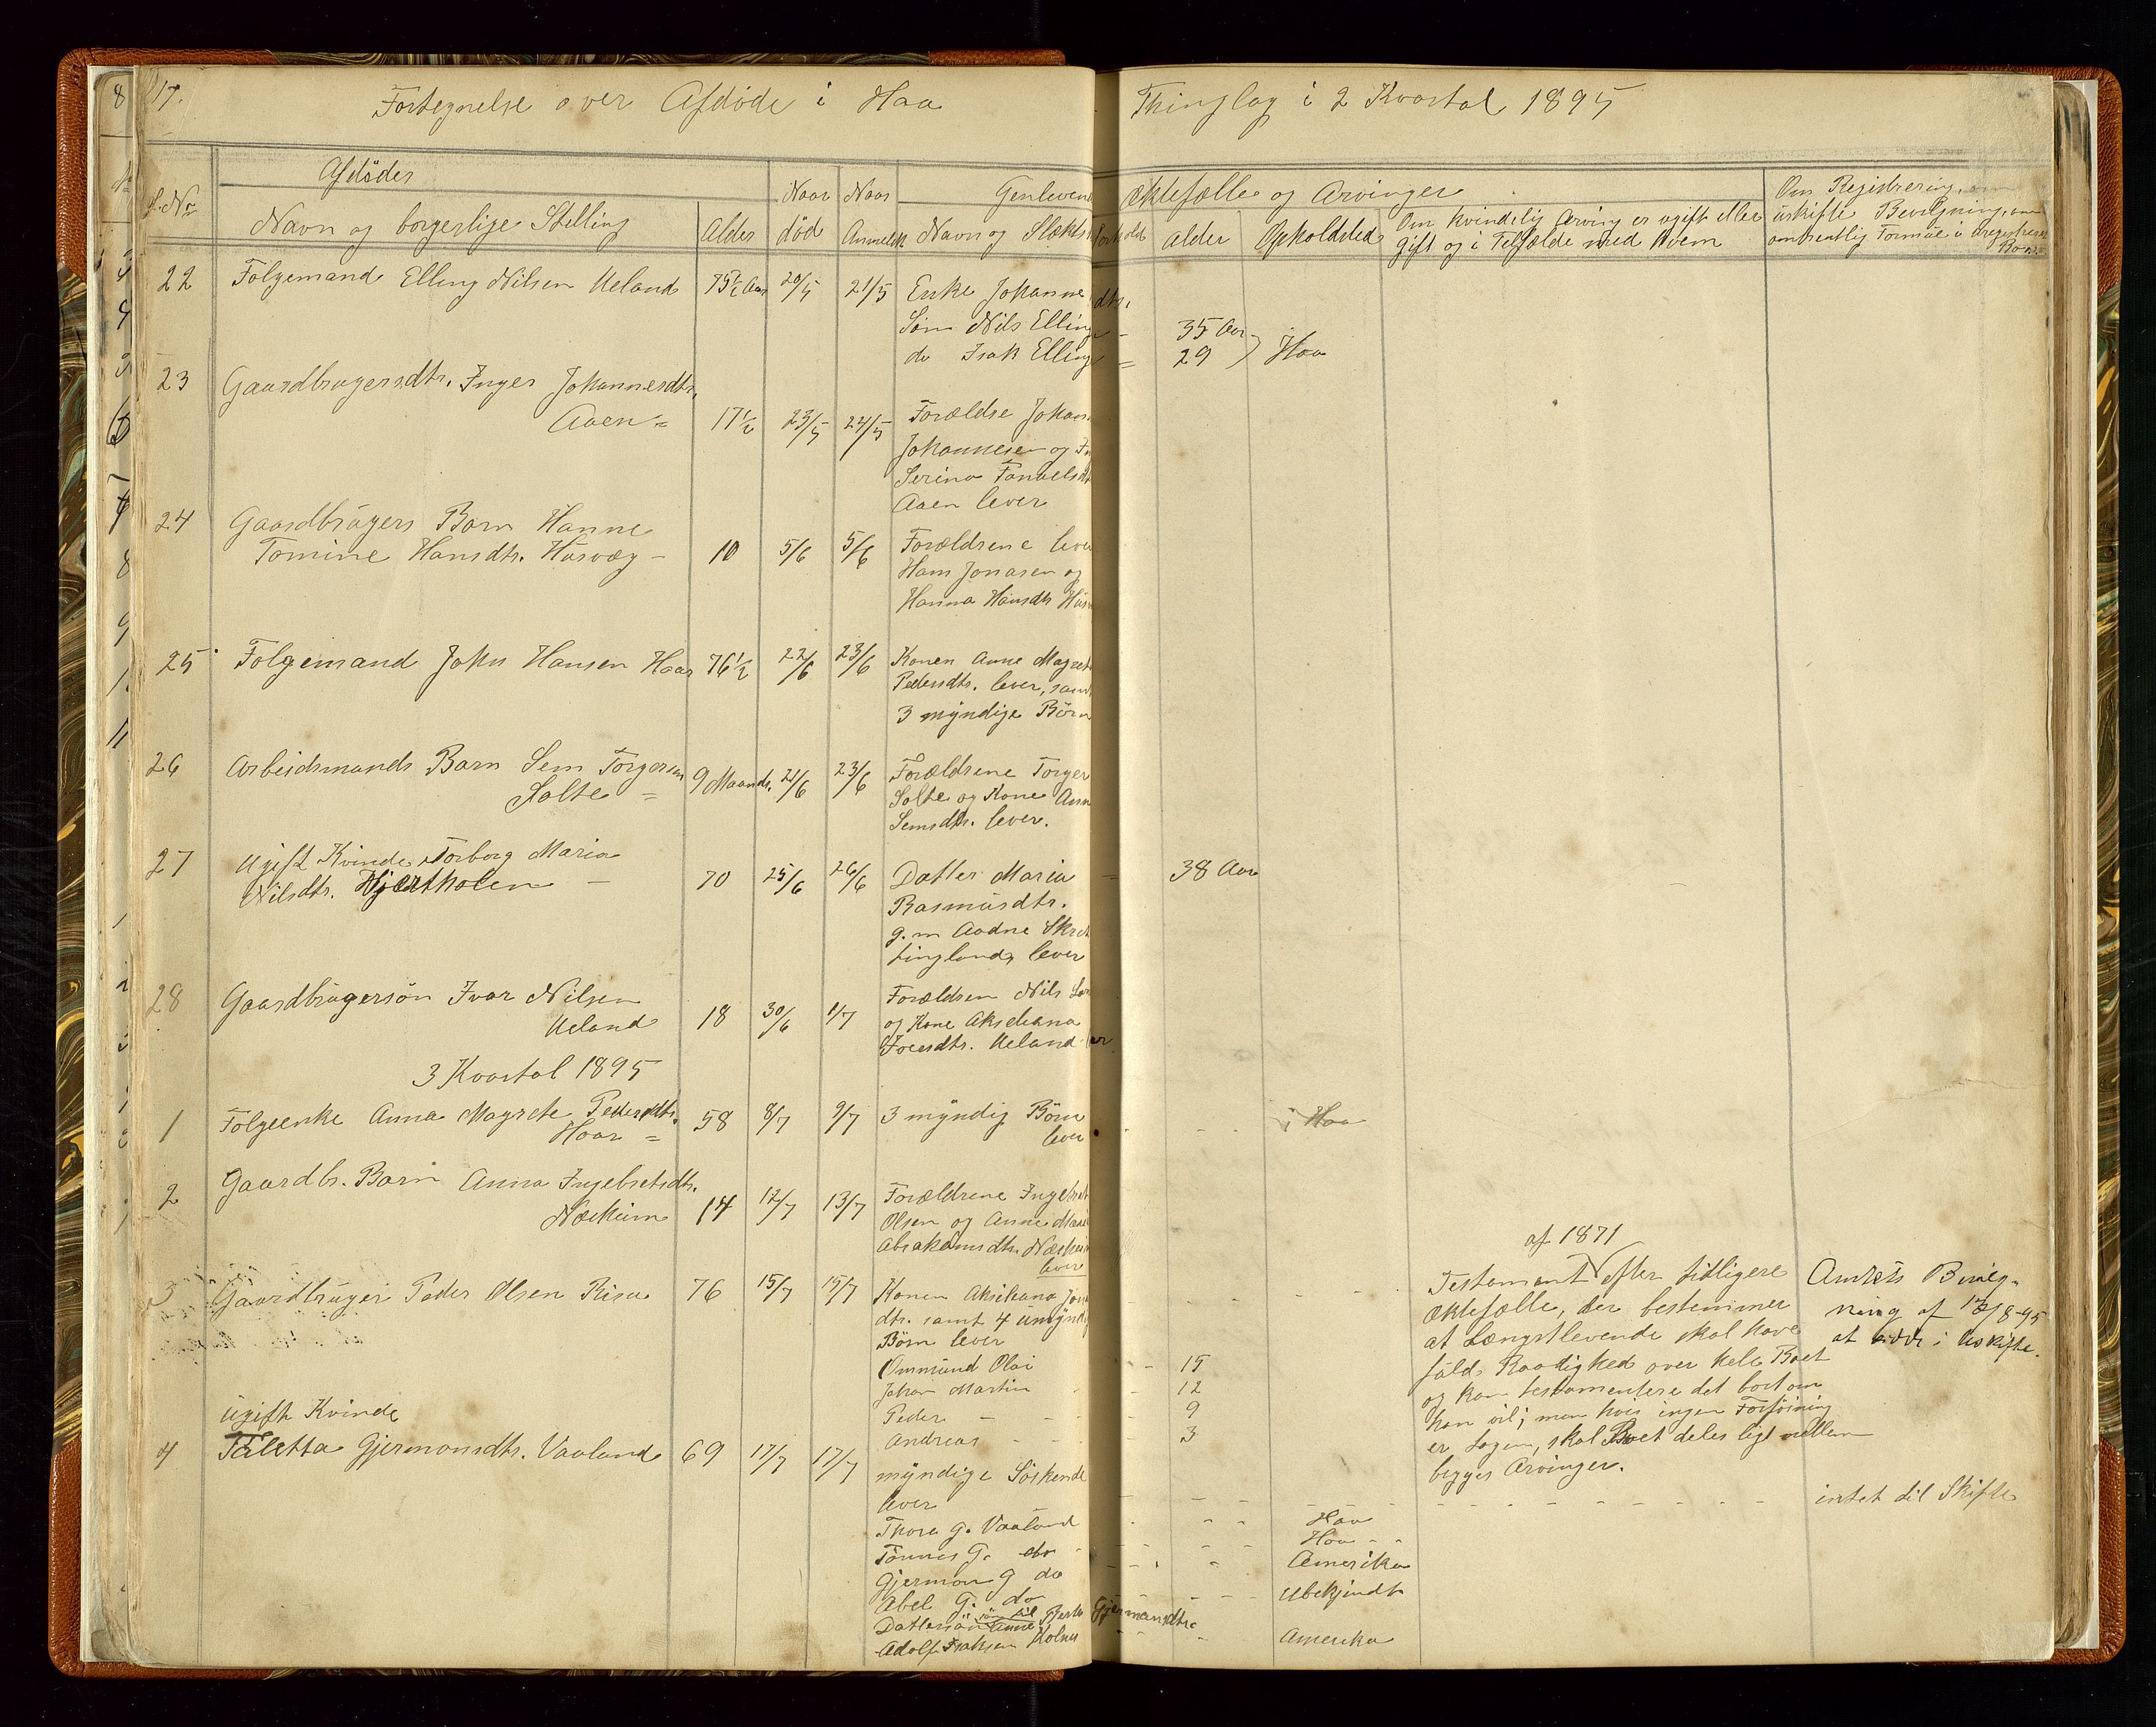 17.
Fortegnelse over Afdöde i Haa Thinglag i 2 Kvartal 1895
Afdödes
Naar Naar Genlevende ektefælle og Arvinger
Om Registrering, om
L. No Navn og borgerlige Stilling Alder död Anmeldt Navn og Slækts forhold alder Opholdsted Om kvindelig Arving er ugift eller
gift og i Tilfælde med hvem
uskifte Bevilgning, om
omtrentlig Formue i uregistrerte
Boer
22 Folgemand Elling Nilsen Ueland 75½ Aar 20/5 21/5 Enke Johanne dtr.
Sön Nils Elling - 35 Aar
do Isak Elling = 29 Haa
23 Gaardbrugersdtr. Inger Johannesdtr.
Aaen = 17½ 23/5 24/5 Forældre Johan
Johannesen og
Serina Tonnelsdt
Aaen lever
24 Gaardbrugers Barn Hanne
Tomine Hansdtr. Husvæg - 10 5/6 5/6 Forældrene leve
Hans Jonasen og
Hanna Hansdtr Hus
25 Folgemand John Hansen Haar 76½ 22/6 23/6 Konen Anne Magret
Pedersdtr. lever, samt
3 myndige Börn
26 Arbeidsmands Barn Sem Torgersen
Salte = 9 Maand. 21/6 23/6 Forældrene Torger
Salte og Kone Ann
Semsdtr. lever.
27 Ugift Kvinde Torborg Maria
Nilsdtr. Njærtholen - 70 25/6 26/6 Datter Maria - 38 Aar
Rasmusdtr.
g. m Aadne Skret
tingland, lever
28 Gaardbrugersön Ivar Nilsen
Ueland 18 30/6 1/7 Forældren Nils
og Kone Akseliana
Iversdtr. Ueland er
3 Kvartal 1895
1 Folgeenke Anna Magrete Pedersdtr.
Haar = 58 8/7 9/7 3 myndig Börn
lever - - - i Haa
2 Gaardbr. Barn Anna Ingebretsdtr.
Nærheim 14 12/7 13/7 Forældrene Ingebret
Olsen og Anne Mari
Abrahamsdtr. Nærhei
lever
af 1871
3 Gaardbruger Peder Olsen Risa 76 15/7 15/7 Konen Akseliana Jon
dtr. samt 4 umyndig
Börn lever
Ommund Olai - - 15
Johan Martin - - 12
Peder - - - 9
Andreas - - - 3
Testament efter tidligere
ektefælle, der bestemmer
at Længstlevende skal have
fuld Raadighed over hele Boet
og kan testamentere det bort om
han vil; men hvis ingen Forföining
er tagen, skal Boet deles ligt mellem
begges Arvinger.
Amtets Bevilg-
ning af 12/8-95
at sidde i Uskifte.
Ugift Kvinde
4 Taletta Gjermonsdtr. Vaaland 69 17/7 17/7 myndige Söskende
lever - - - - - - intet til Skifte
Thore G. Vaaland - - - Haa
Tönnes G. do - - - Haa - -
Gjermon G do - - - Amerika
Abel G. do - - - Ubekjendt
Dattersön Anne Gjermonsdtr.
Adolf Isaksen Holm - - Amerika